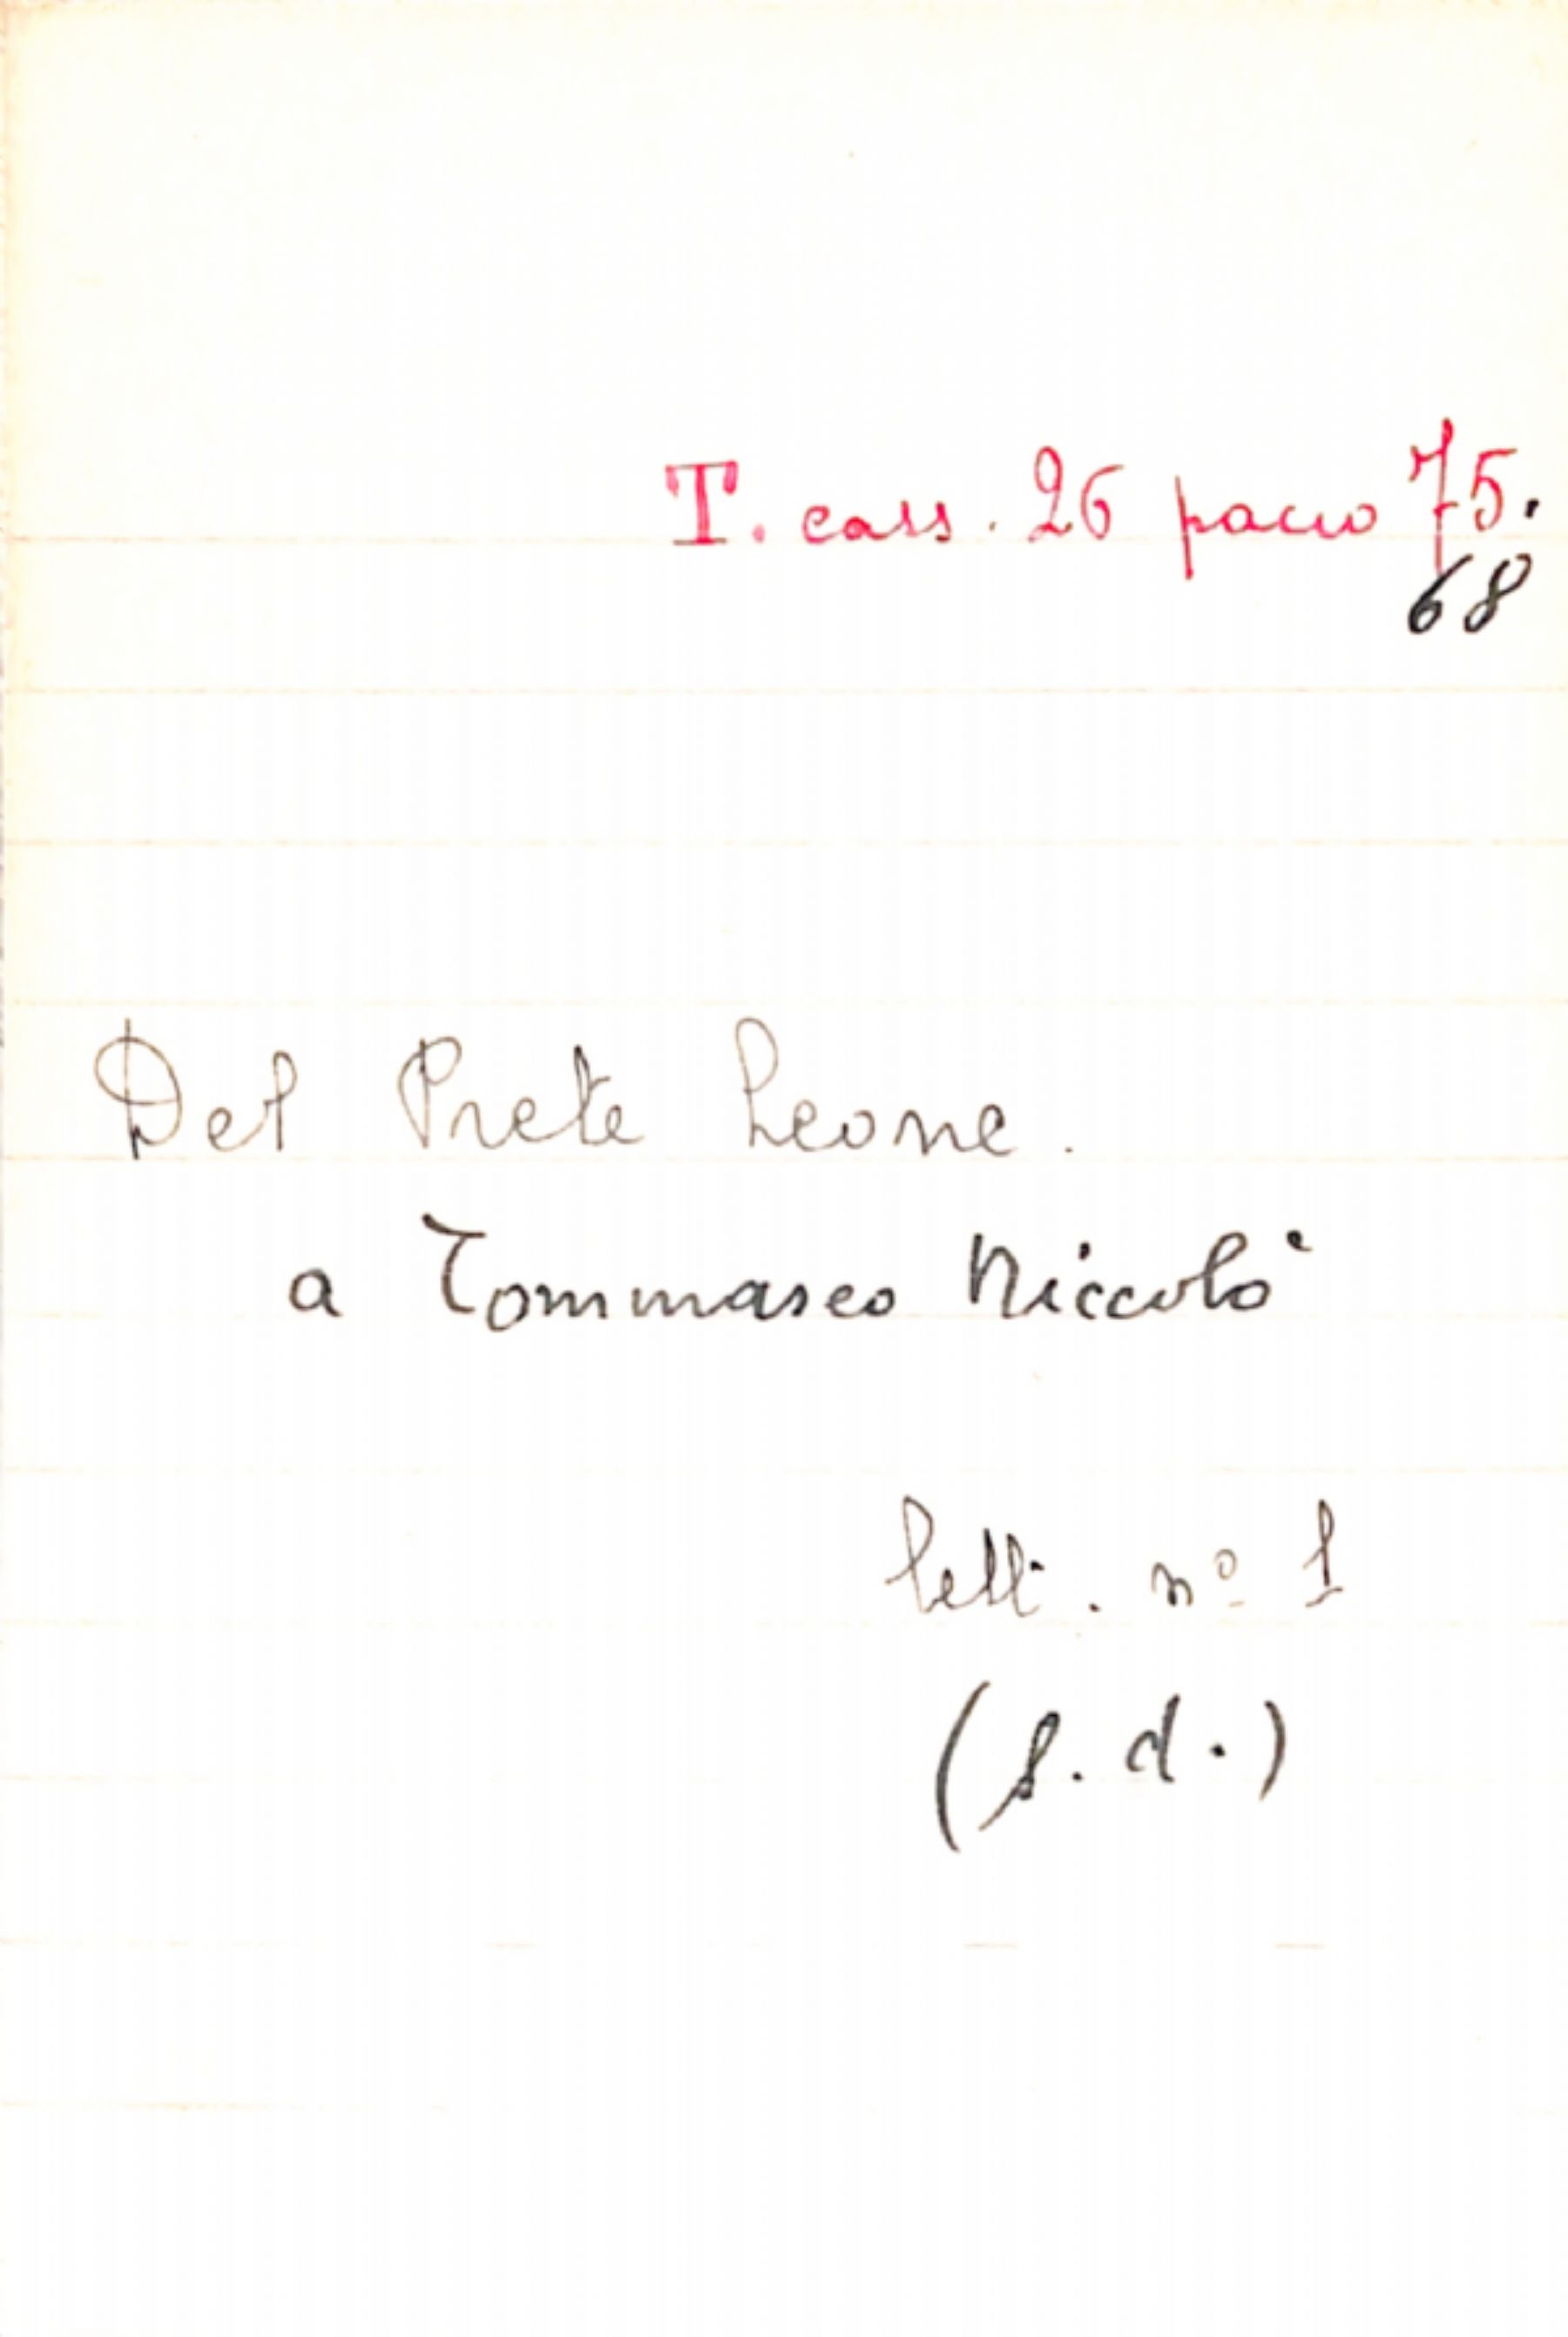 T. cass. 26 pacco 75.
68
Del Prete Leone.
a Tommaseo Niccolò
lett. nº 1
(s. d.)